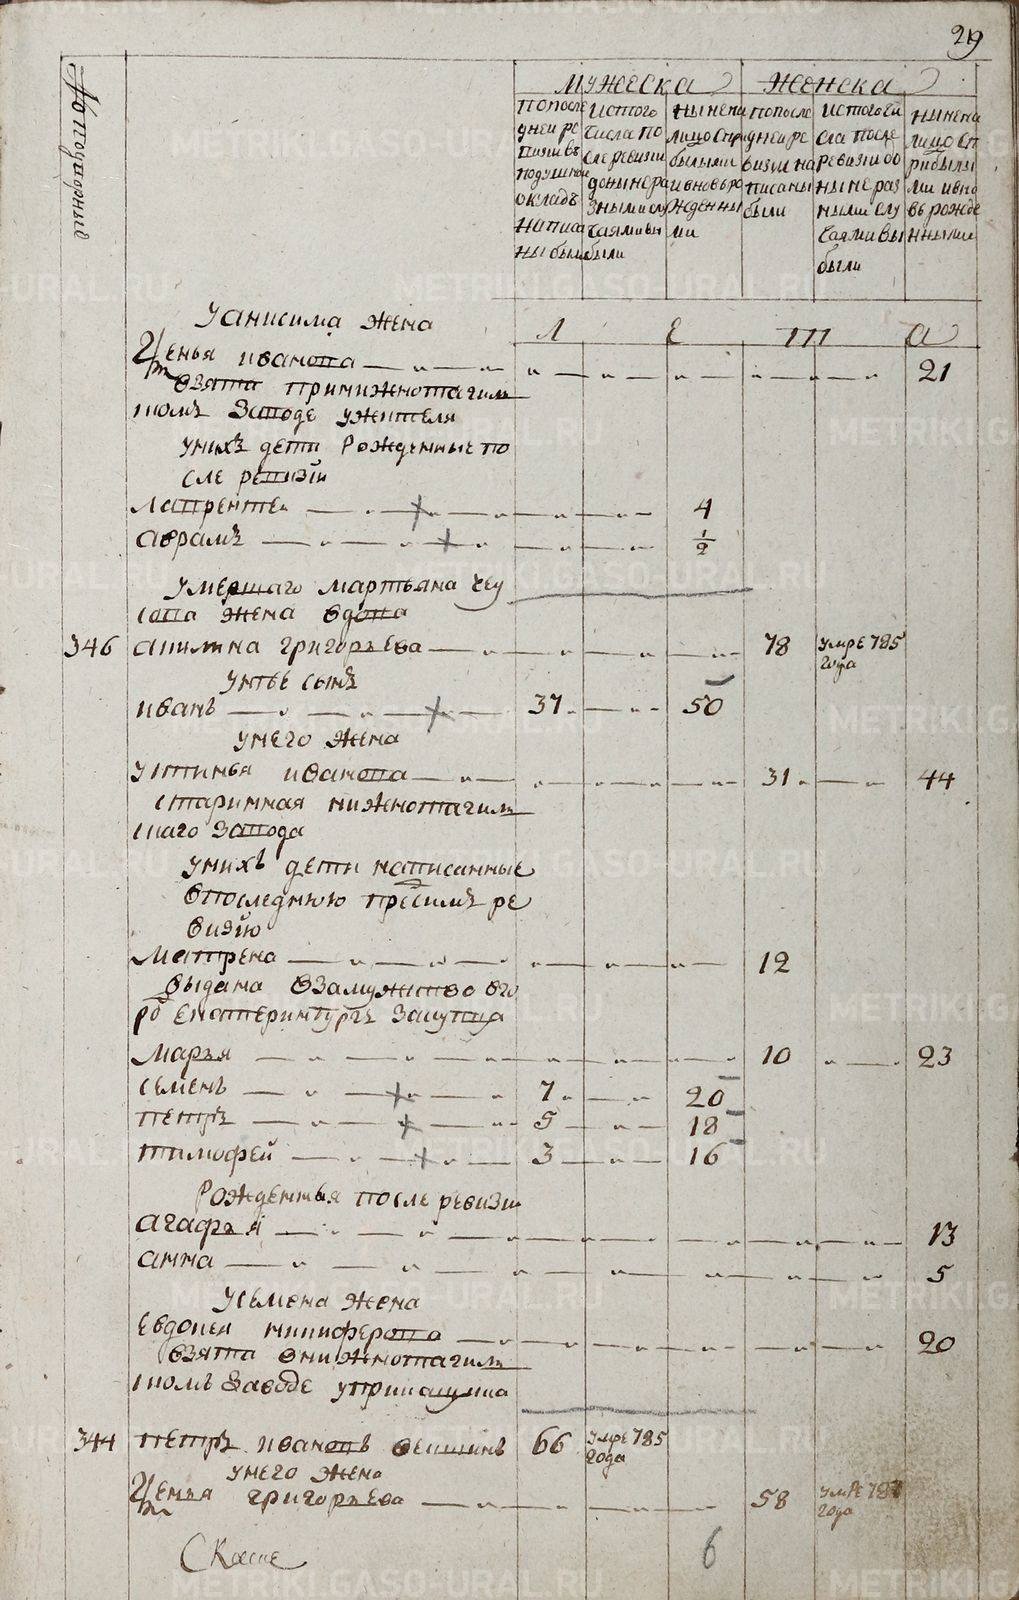 219
№ подушный
мужеска
женска
по после
дней ре
визии въ
подушной
окладъ
написа
ны были
ис того
числа по
сле ревизии
до ныне ра
зными слу
чаями вы
были
ныне на
лицо с при
былыми
и вновь ро
жденны
ми
по после
дней ре
визии на
писаны
были
ис того чи
сла после
ревизии до
ныне раз
ными слу
чаями вы
были
ныне на
лицо с п
рибылы
ми и вно
вь рожде
нными
У анисима жена
Л Е Т А
иванова 21
взята при нижнотагиль
скомъ заводе у жителя
у нихъ дети рожденные по
сле ревизии
лаврентеи 4
аврамъ 1/2
умершаго мартьяна чеу
сова жена вдова
346 акилина григорьева 78 умре 785
года
у нее сынъ
иванъ 37 50
у него жена
устинья иванова 31 44
старинная нижнотагиль
скаго завода
у нихъ дети написанные
в последнюю пред симъ ре
визию
матрена 12
выдана в замужство в го
род екатеринбургъ
марья 10 23
семенъ 7 20
петръ 5 18
тимофей 3 16
Рожденныя после ревизии
агафья 13
анна 5
У семена жена
Евдокея никиферова 20
взята в нижнотагиль
скомъ заводе
344 петръ ивановъ 66 умре 785
года
у него жена
григорьева 58 умре 787
года
6
METRIKI.GASO-URAL.RU